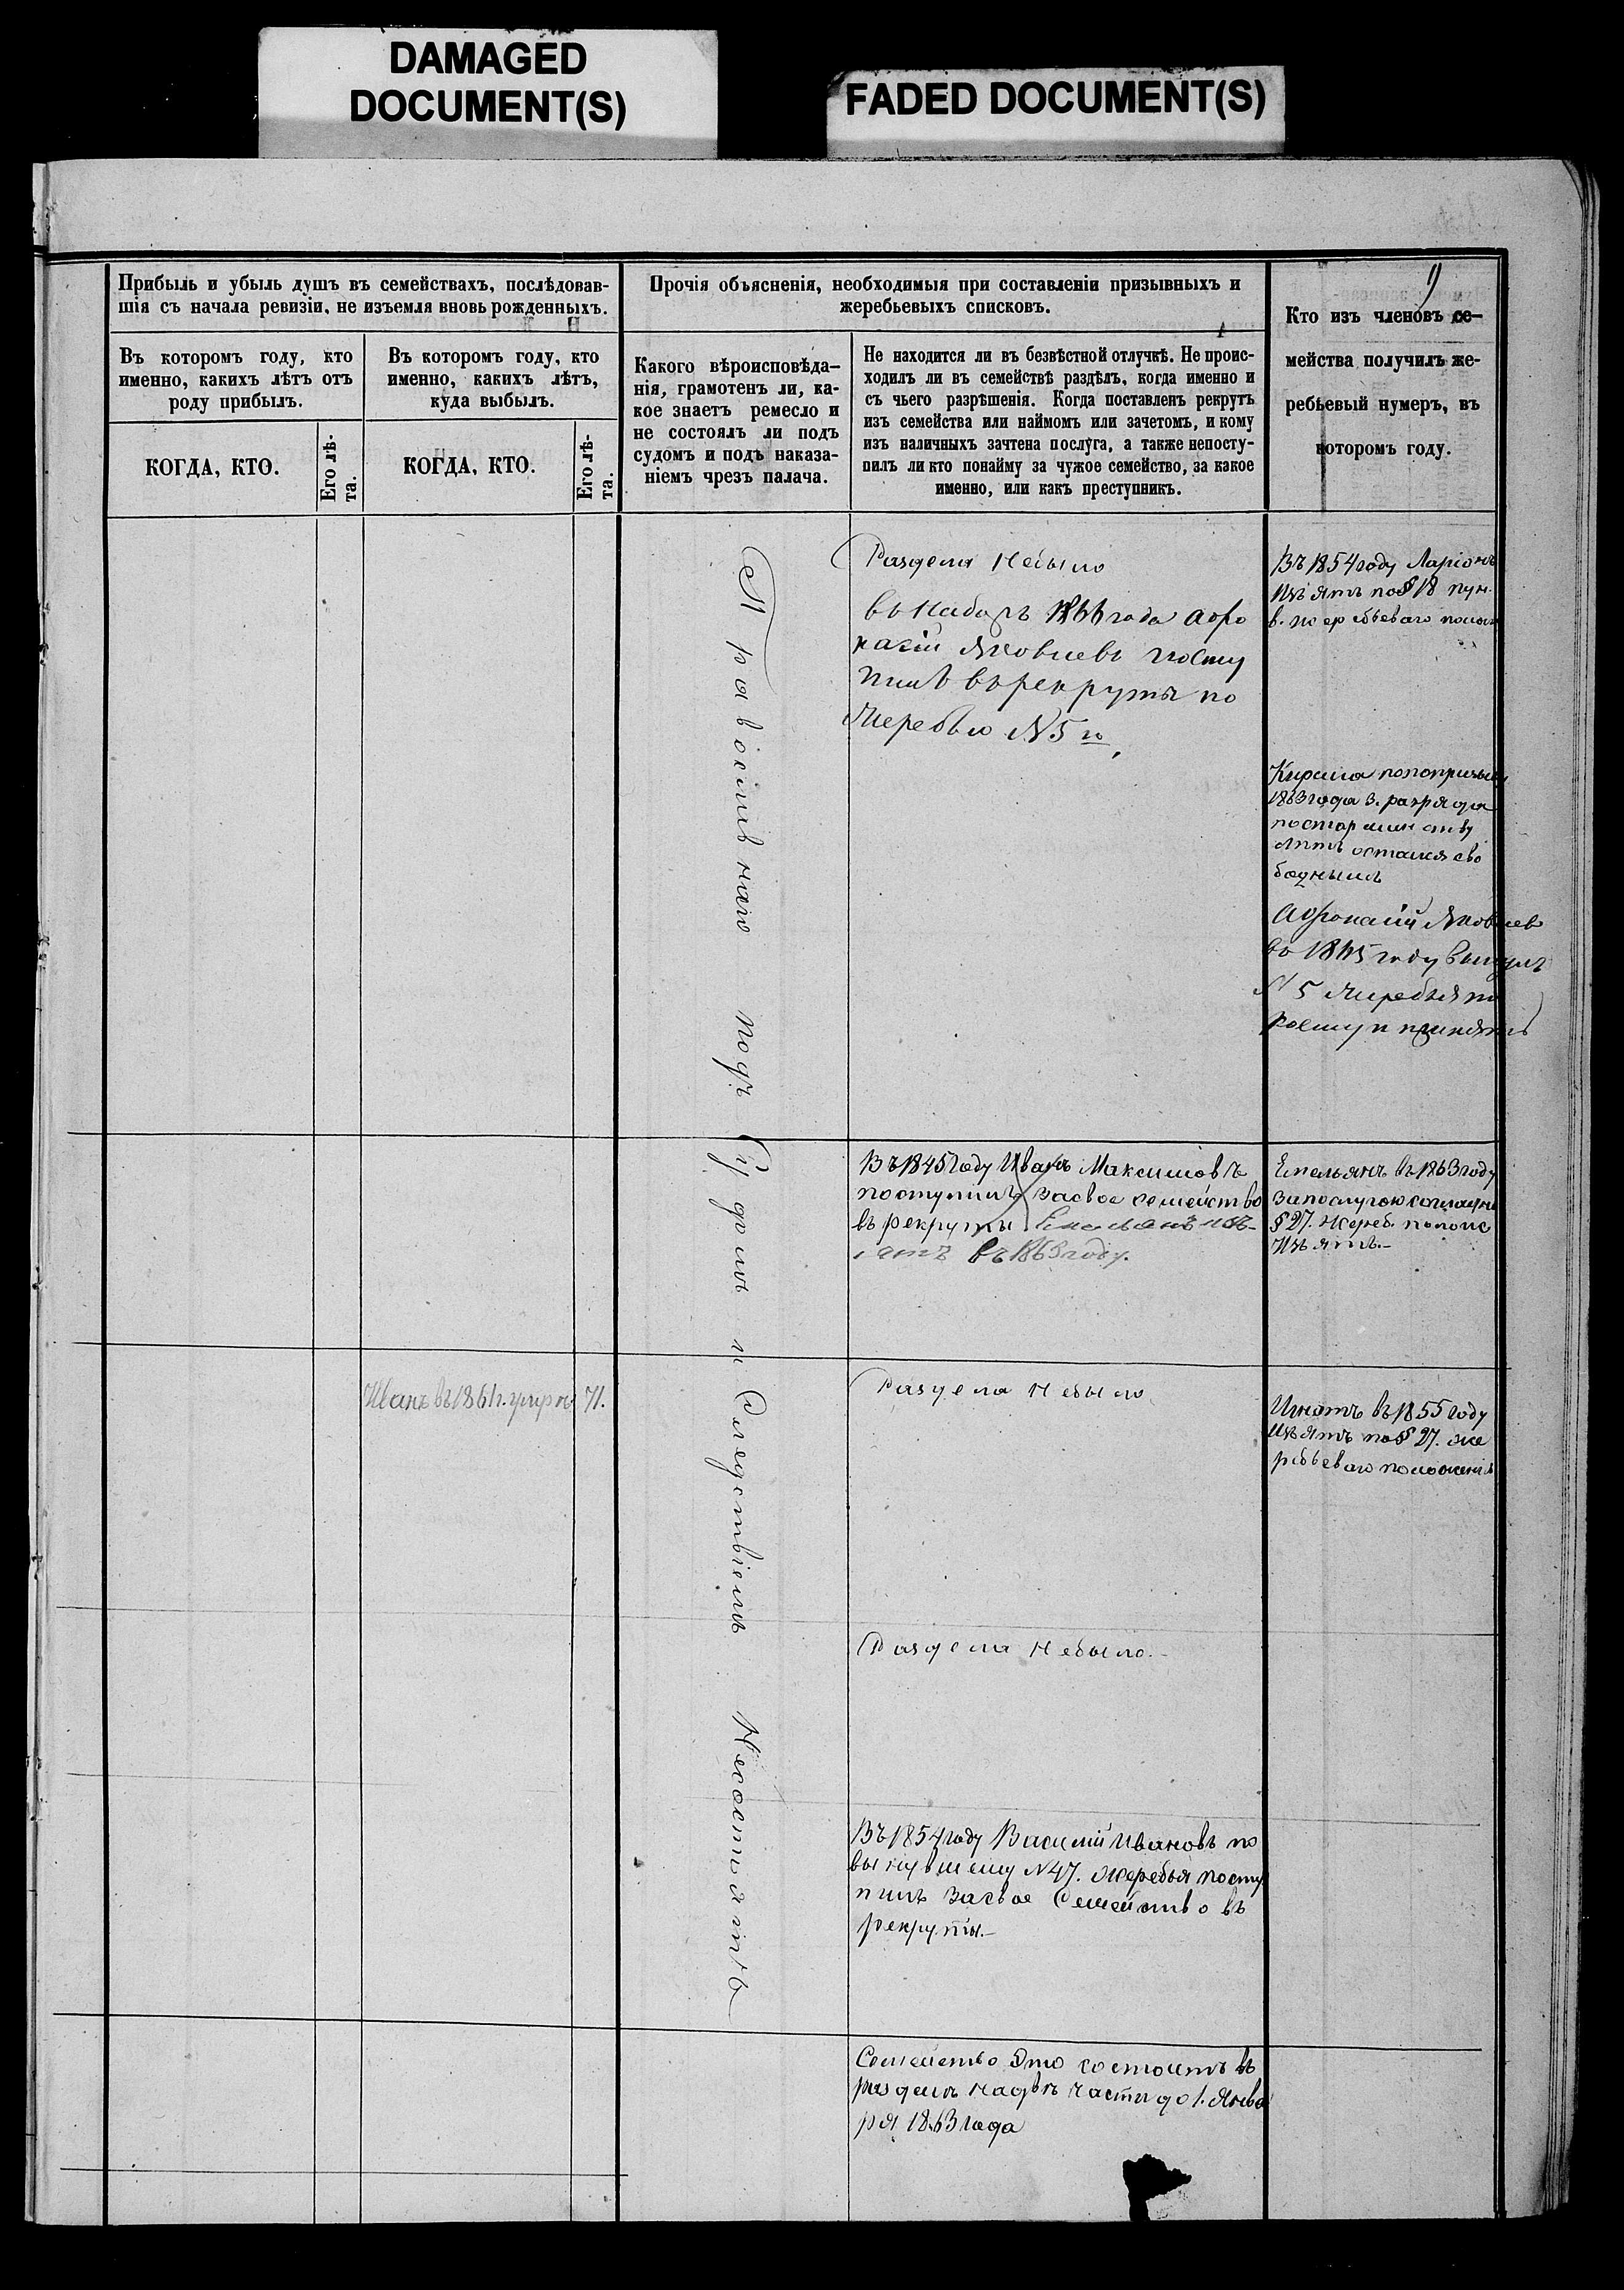 DAMAGED
DOCUMENT(S)
FADED DOCUMENT(S)
9
Прибыль и убыль душъ въ семействахъ, послѣдовав-
шія съ начала ревизіи, не изъемля вновь рожденныхъ.
Въ которомъ году, кто
именно, какихъ лѣтъ отъ
роду прибылъ.
КОГДА, КТО.
Его лѣ-
та.
Въ которомъ году, кто
именно, какихъ лѣтъ,
куда выбылъ.
КОГДА, КТО.
Его лѣ-
та.
Прочія объясненія, необходимыя при составленіи призывныхъ и
жеребьевыхъ списковъ.
Какого вѣроисповѣда-
нія, грамотенъ ли, ка-
кое знаетъ ремесло и
не состоялъ ли подъ
судомъ и подъ наказа-
ніемъ чрезъ палача.
Не находится ли въ безвѣстной отлучкѣ. Не проис-
ходилъ ли въ семействѣ раздѣлъ, когда именно и
съ чьего разрѣшенія. Когда поставленъ рекрутъ
изъ семейства или наймомъ или зачетомъ, и кому
изъ наличныхъ зачтена послуга, а также непосту-
пилъ ли кто понайму за чужое семейство, за какое
именно, или какъ преступникъ.
Кто изъ членовъ се-
мейства получилъ же-
ребьевый нумеръ, въ
которомъ году.
Православнаго подъ Судомъ и Следствіемъ Несостоятъ
Раздела Небыло
въ Наборъ 1866 года Афо
насій Яковлевъ посту
пилъ въ рекруты по
Жеребью N 5 го
Въ 1854 году Ларіонъ
Изъятъ по § 18 пун.
в. жеребьеваго полож
Кирила
1863 года 3. разряда
по старшинству
лѣтъ остался сво
боднымъ
Афонасій Яковлев
въ 1865 году вынулъ
N 5 Жеребья по
коему и принятъ
Въ 1845 году Иванъ Максимовъ
поступилъ за свое семейство
въ рекруты Емельянъ изъ-
ятъ въ 1863 году.
Емельянъ въ 1863 году
за послугою
§ 27. Жереб. полож
Изъятъ.-
Иванъ въ 1861 г. умре 71.
Раздела Небыло
Игнатъ въ 1855 году
Изъятъ по § 27. же
ребьеваго положенія
Раздела Небыло.-
Въ 1854 году Василій Ивановъ по
вынувшему N 47. жеребья посту
пилъ за свое Семейство въ
рекруты.-
Семейство Это состоитъ въ
разделѣ на двѣ части до 1. Янва
ря 1863 года